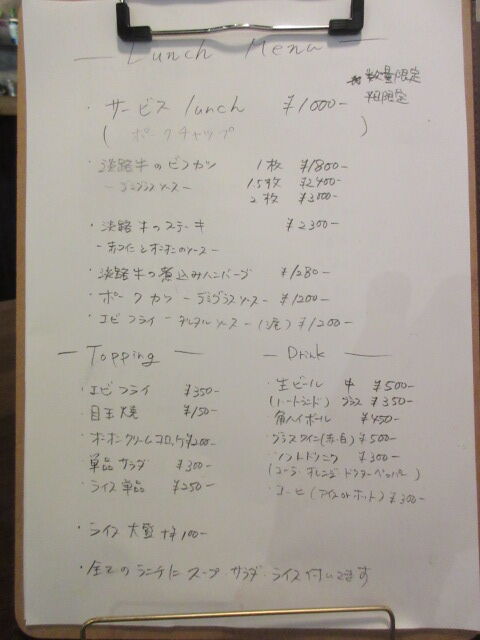 Lunch Menu
・サービス lunch ¥1000-
※数量限定
(ポークチャップ)
・淡路牛のビフカツ 1枚 ¥1800-
-デミグラスソース- 1.5枚 ¥2400-
2枚 ¥3000-
・淡路牛のステーキ ¥2300-
-赤ワインとオニオンのソース-
・淡路牛の煮込みハンバーグ ¥1280-
・ポークカツ -デミグラスソース- ¥1200-
・エビフライ -タルタルソース- ¥1200-
Topping
・エビフライ ¥350-
・目玉焼 ¥150-
・オニオンクリームコロッケ ¥200-
・単品サラダ ¥300-
・ライス単品 ¥250-
・ライス大盛 ¥100-
Drink
・生ビール 中 ¥500-
(ハートランド) グラス ¥350-
・角ハイボール ¥450-
・グラスワイン(赤・白) ¥500-
・ソフトドリンク ¥300-
(コーラ・オレンジ・ドクターペッパー)
・コーヒー(アイス or ホット) ¥300-
・全てのランチにスープ・サラダ・ライス付いてます